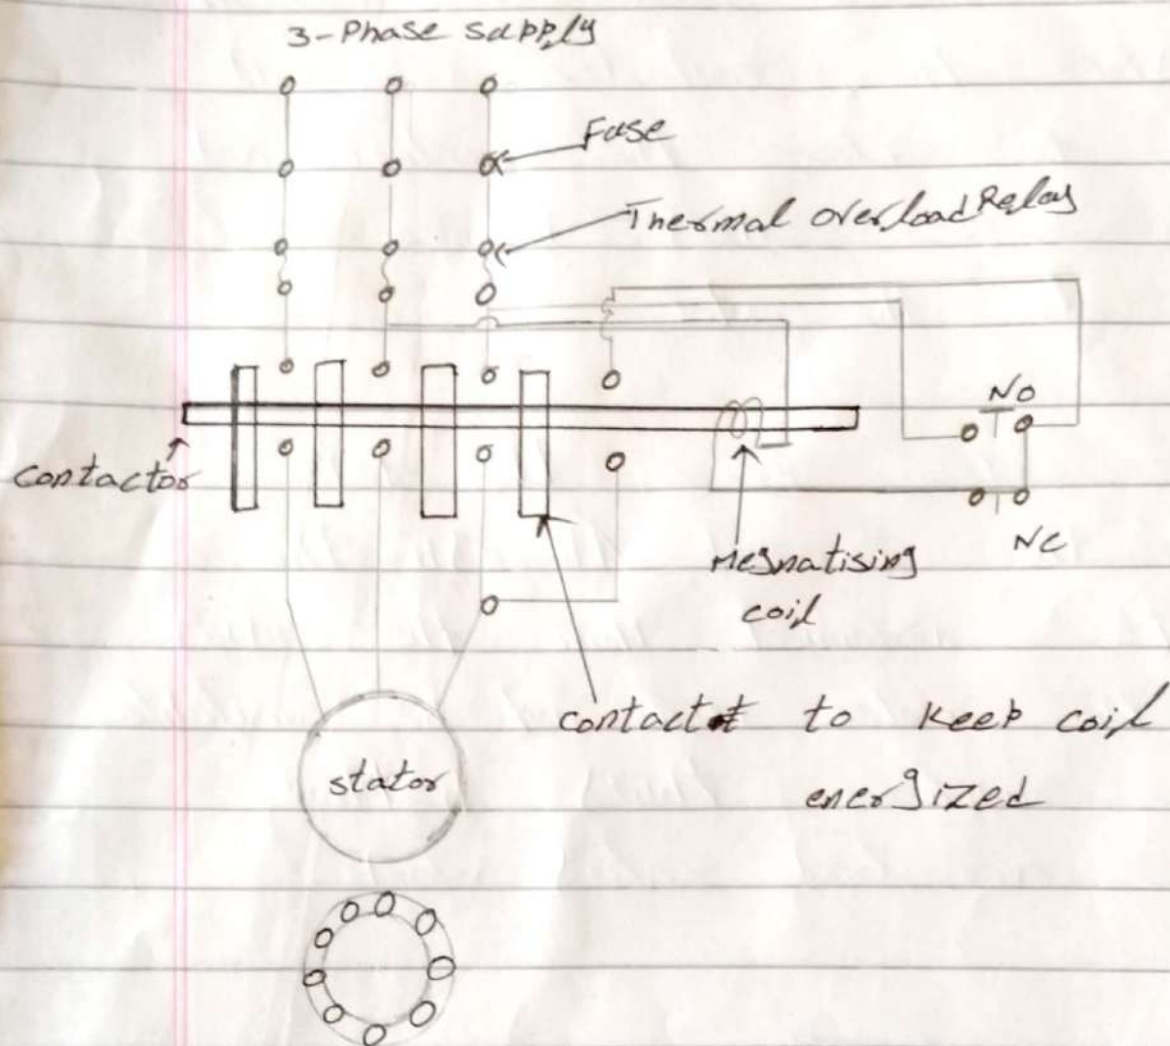 3-Phase supply
Fuse
Thermal overload Relay
NO
Contactor
NC
Megnatising
coil
contact to keep coil
energized
stator